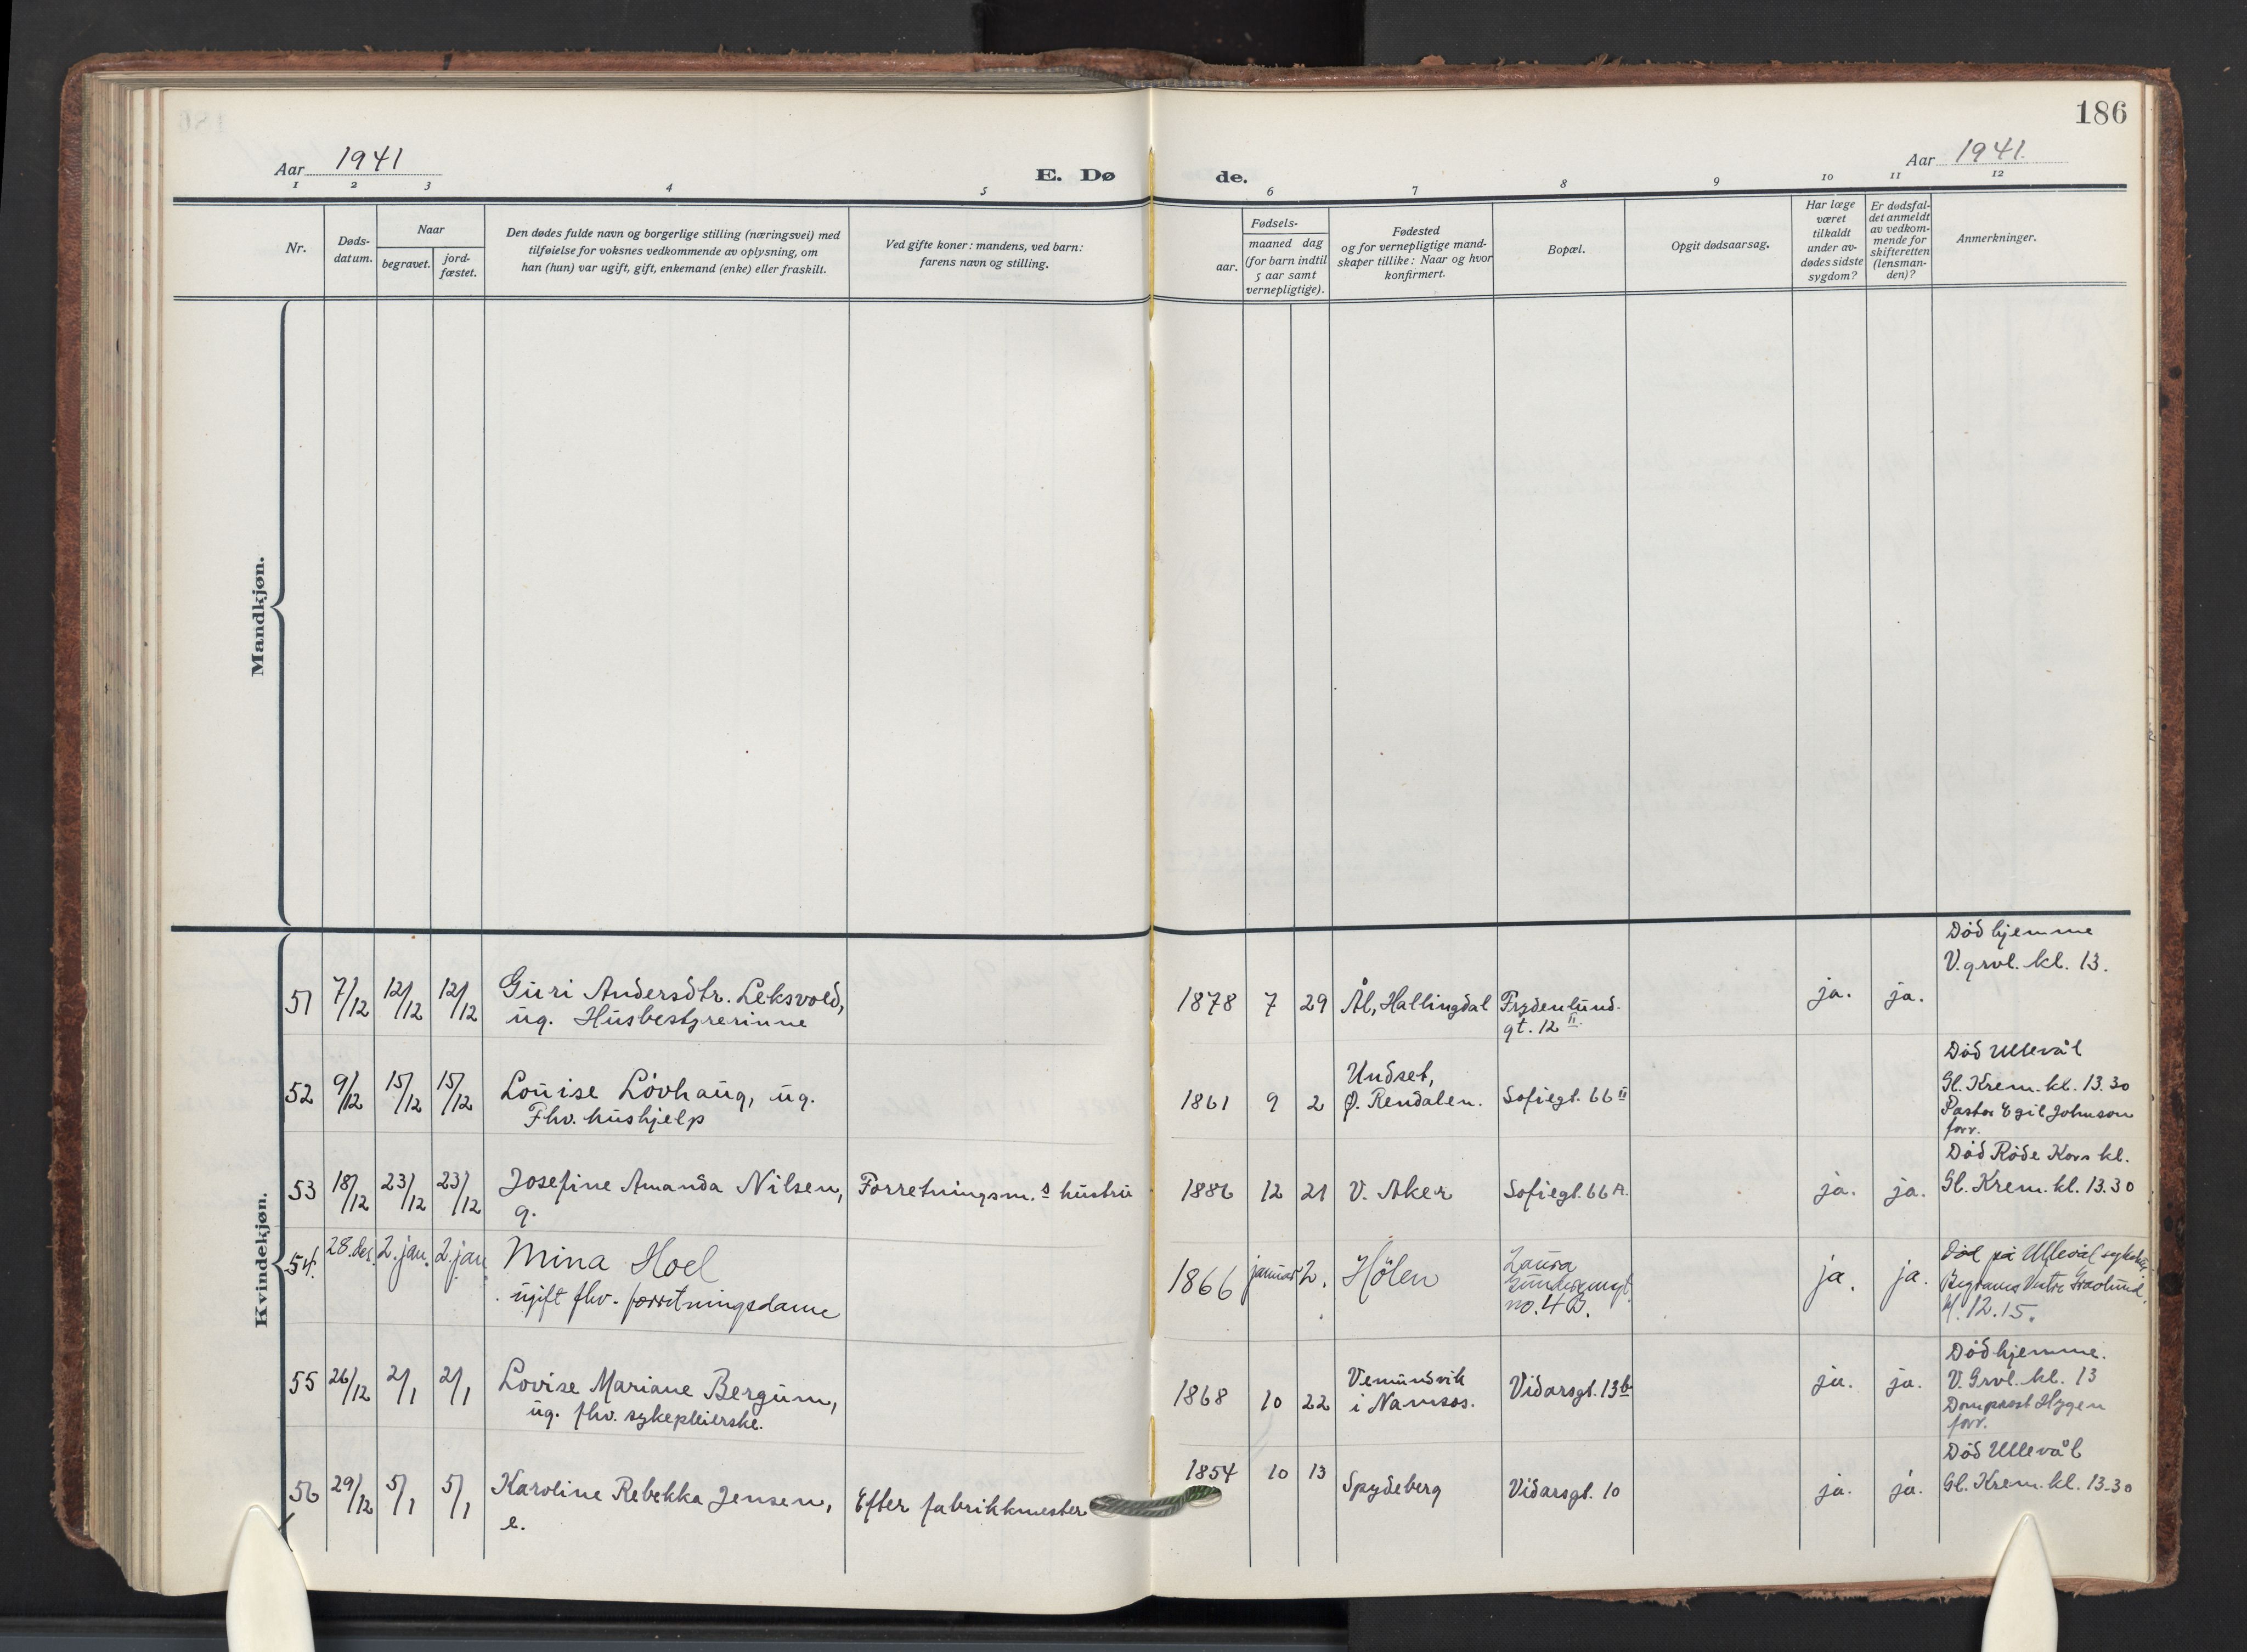 186
Aar 1941
E. Dø
de.
Aar 1941.
1 2 3 4 5 6 7 8 9 10 11 12
Nr.
Døds-
datum.
Naar
begravet.
jord-
fæstet.
Den dødes fulde navn og borgerlige stilling (næringsvei) med
tilføielse for voksnes vedkommende av oplysning, om
han (hun) var ugift, gift, enkemand (enke) eller fraskilt.
Ved gifte koner: mandens, ved barn:
farens navn og stilling.
Fødsels-
aar.
maaned dag
(for barn indtil
5 aar samt
vernepligtige).
Fødested
og for vernepligtige mand-
skaper tillike: Naar og hvor
konfirmert.
Bopæl.
Opgit dødsaarsag.
Har læge
været
tilkaldt
under av-
dødes sidste
sygdom?
Er dødsfal-
det anmeldt
av vedkom-
mende for
skifteretten
(lensman-
den)?
Anmerkninger.
Mandkjøn.
Kvindekjøn.
51 7/12 12/12 12/12 Guri Andersdtr. Leksvold,
ug. Husbestyrerinne
1878 7 29 Ål, Hallingdal Frydenlund-
gt. 12 II
ja. ja.
Död hjemme
V. grvl. kl. 13.
52 9/12 15/12 15/12 Louise Lövhaug, ug.
Fhv. hushjelp
1861 9 2
Undset,
Ø. Rendalen.
Sofiegt. 66 II
Död Ullevål
Gl. Krem. kl. 13.30
Pastor Egil Johnson
forr.
53 18/12 23/12 23/12 Josefine Amanda Nilsen,
g.
Forretningsm.s hustru
1886 12 21 V. Aker Sofiegt. 66 A.
ja. ja.
Död Röde Kors kl.
Gl. Krem. kl. 13.30
54. 28. des. 2. jan. 2. jan. Mina Hoel
ugift fhv. forretningsdame
1866 januar 2. Hölen
Laura
no. 4 B.
ja. ja.
Död på Ullevål sykehus.
Vestre Gravlund.
kl. 12.15.
55 26/12 2/1 2/1 Lovise Mariane Bergum,
ug. fhv. sykepleierske.
1868 10 22
Vemundvik
i Namsos.
Vidarsgt. 13 b
ja. ja.
Död hjemme.
V. Grvl. kl. 13
Domprost Hygen
forr.
56 29/12 5/1 5/1 Karoline Rebekka Jensen,
e.
Efter fabrikkmester
1854 10 13 Spydeberg Vidarsgt. 10
ja. ja.
Död Ullevål
Gl. Krem. kl. 13.30